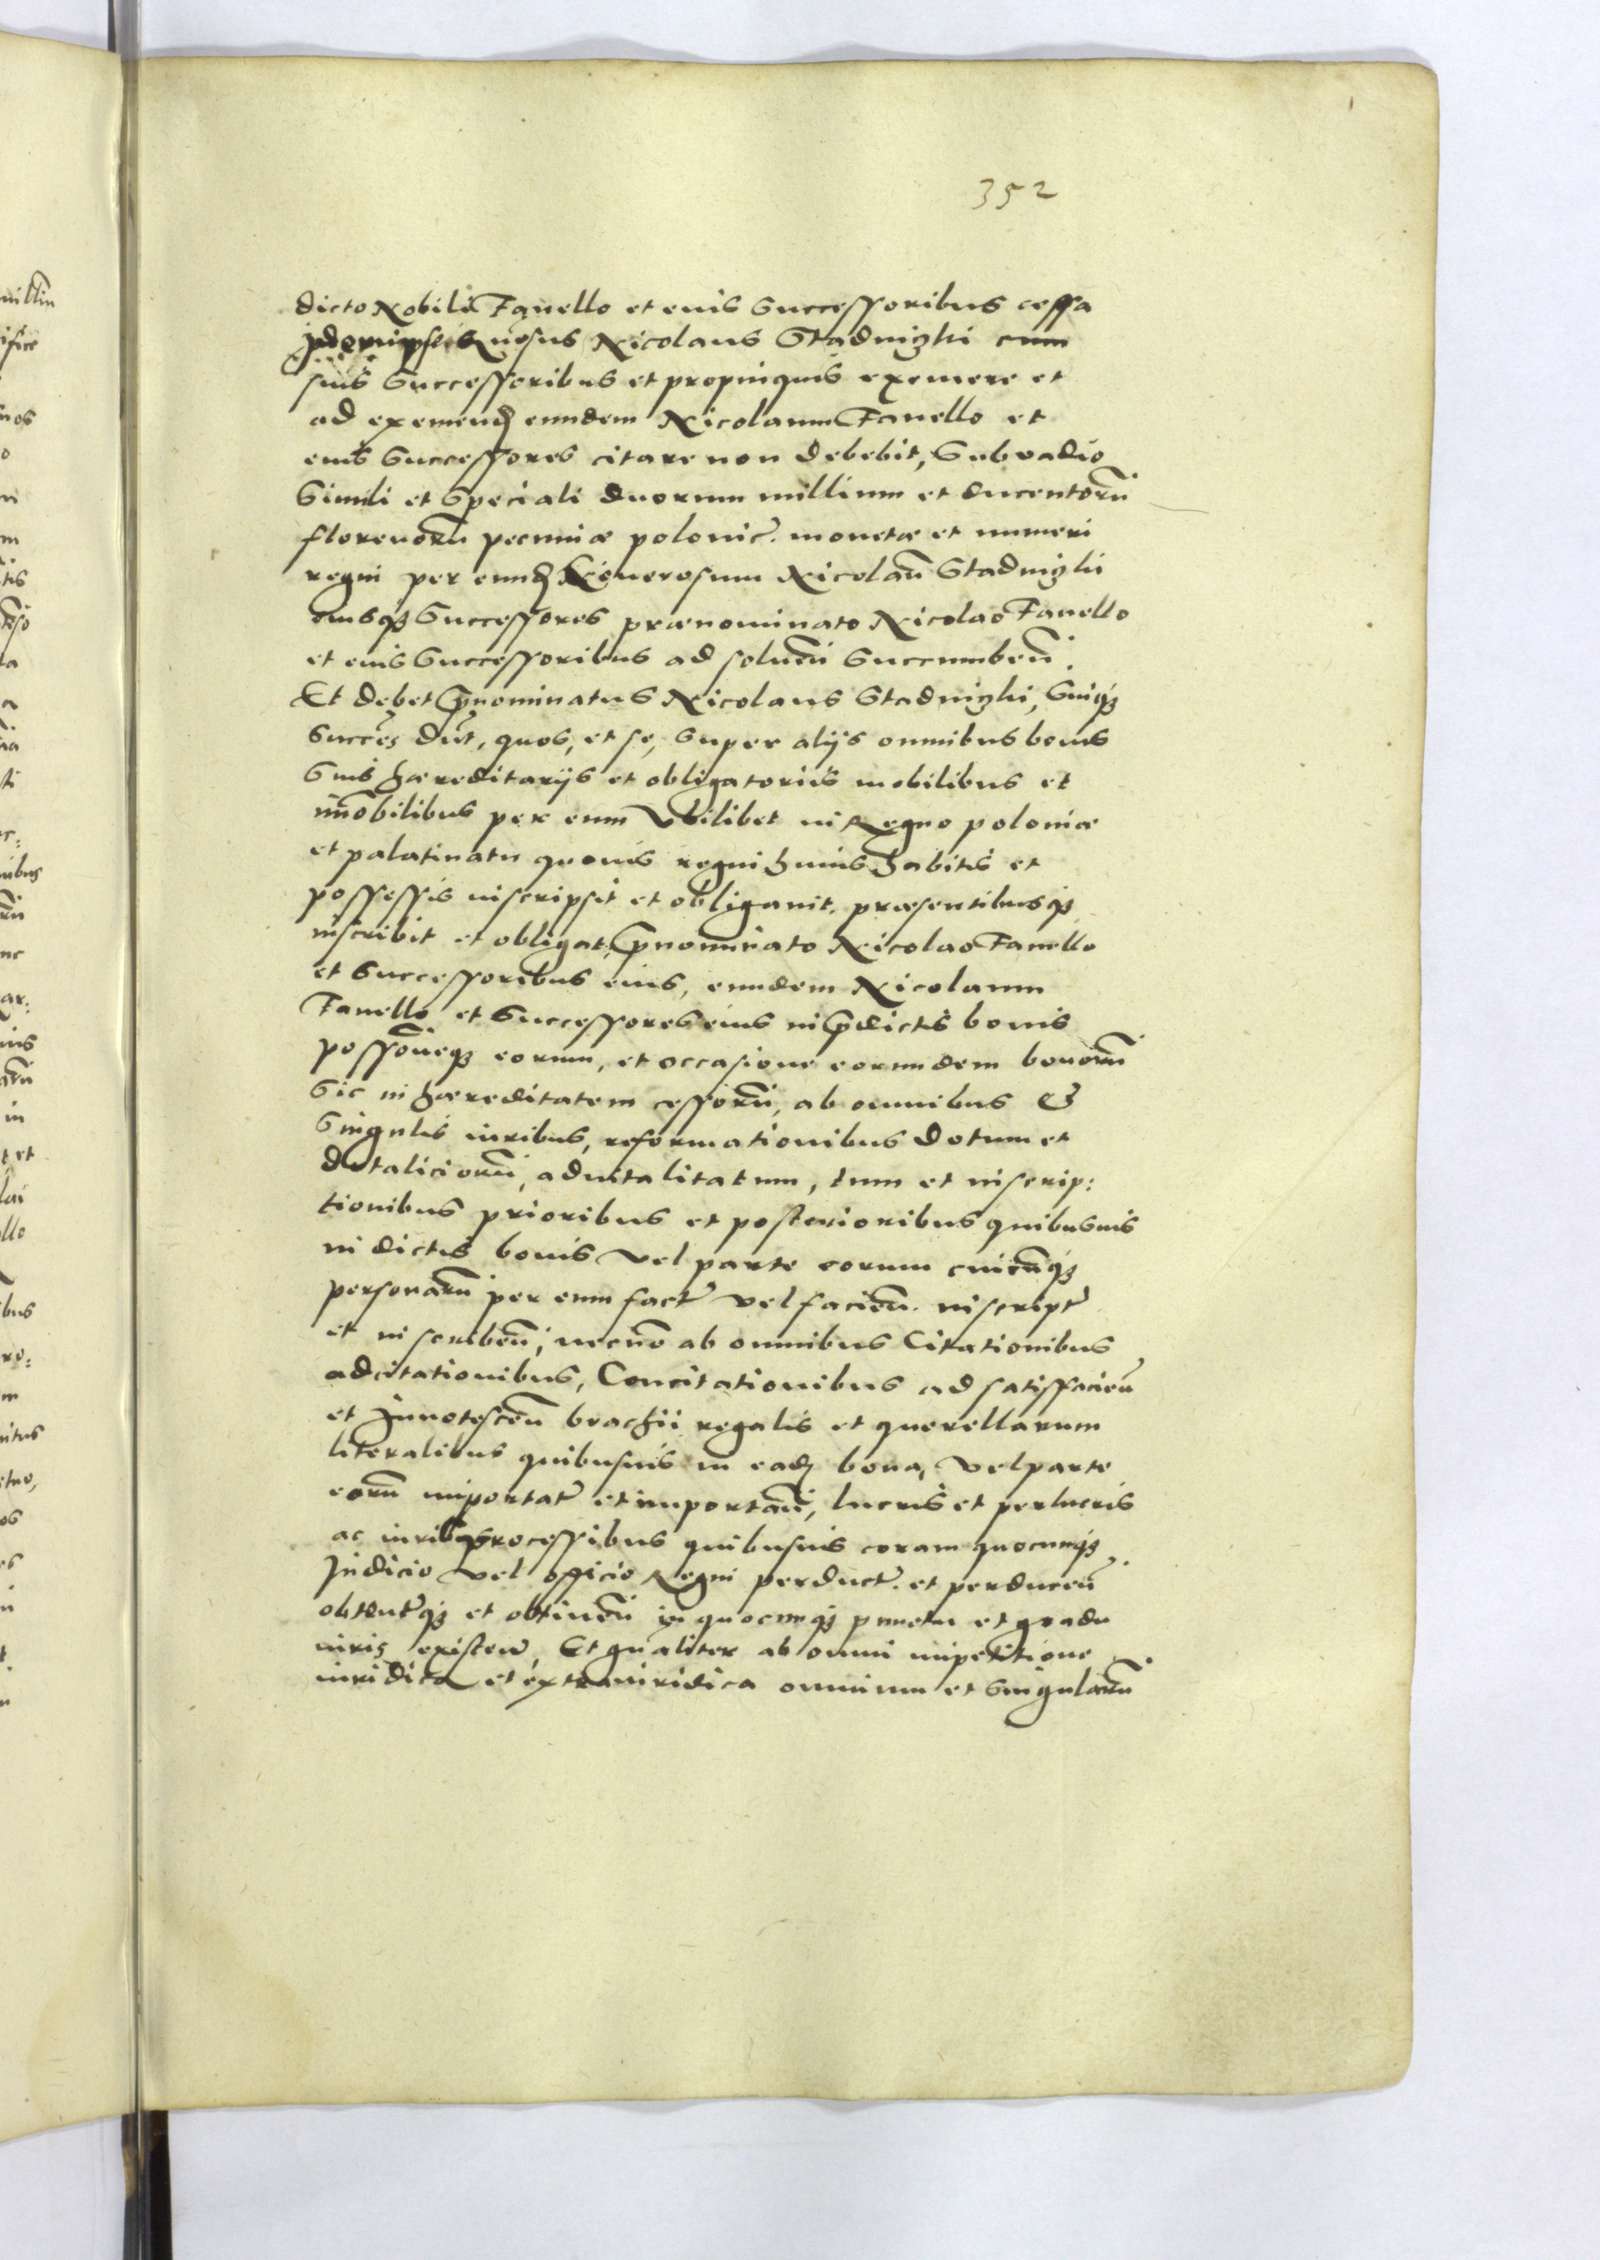 352
dicto Nobili Fanello et eius Successoribus cessa
idem ipse Gnosus Nicolaus Stadnizki cum
suis Successoribus et propinquis eximere et
ad eximend eundem Nicolaum Fanello et
eius Successores citare non debebit, Sub vadio
Simili et Speciali duorum millium et ducentorũ
florenorũ pecuniæ polonic. monetæ et numeri
regni per eund Generosum Nicolaũ Stadnizki
eiusq Successores prænominato Nicolao Fanello
et eius Successoribus ad soluen Succumben.
Et debet pnominatus Nicolaus Stadnizki, Suiq
Succes dũt, quos, et se, Super alijs omnibus bonis
Suis hæreditarijs et obligatoriis mobilibus et
imobilibus per eum Vbilibet in Regno poloniæ
et palatinatu quouis regni huius habitis et
possessis inscripsit et obligauit, præsentibusq
inscribit et obligat, pnominato Nicolao Fanello
et Successoribus eius, eundem Nicolaum
Fanello et Successores eius in pdictis bonis
possõneq eorum, et occasione eorundem bonorũ
Sic in hæreditatem cessorũ, ab omnibus &
Singulis iuribus, reformationibus dotum et
dotaliciorũ, aduitalitatum, tum et inscrip:
tionibus prioribus et posterioribus quibusuis
in dictis bonis Vel parte eorum cuicũq
personarũ per eum fact Vel facien. inscript
et inscriben, necnõ ab omnibus Citationibus
adcitationibus, Concitationibus ad satisfacien
et Innotescen brachii regalis et querellarum
literalibus quibusuis in ead bona, Vel parte
eorũ importat et importan, lucris et perlucris
ac iurib processibus quibusuis coram quocunq
Iudicio Vel officio Regni perduct. et perducen
obtentq et obtinen in quocunq punctu et gradu
iuris existen, Et qualiter ab omni impetitione
iuridica et extraiuridica omnium et Singularũ